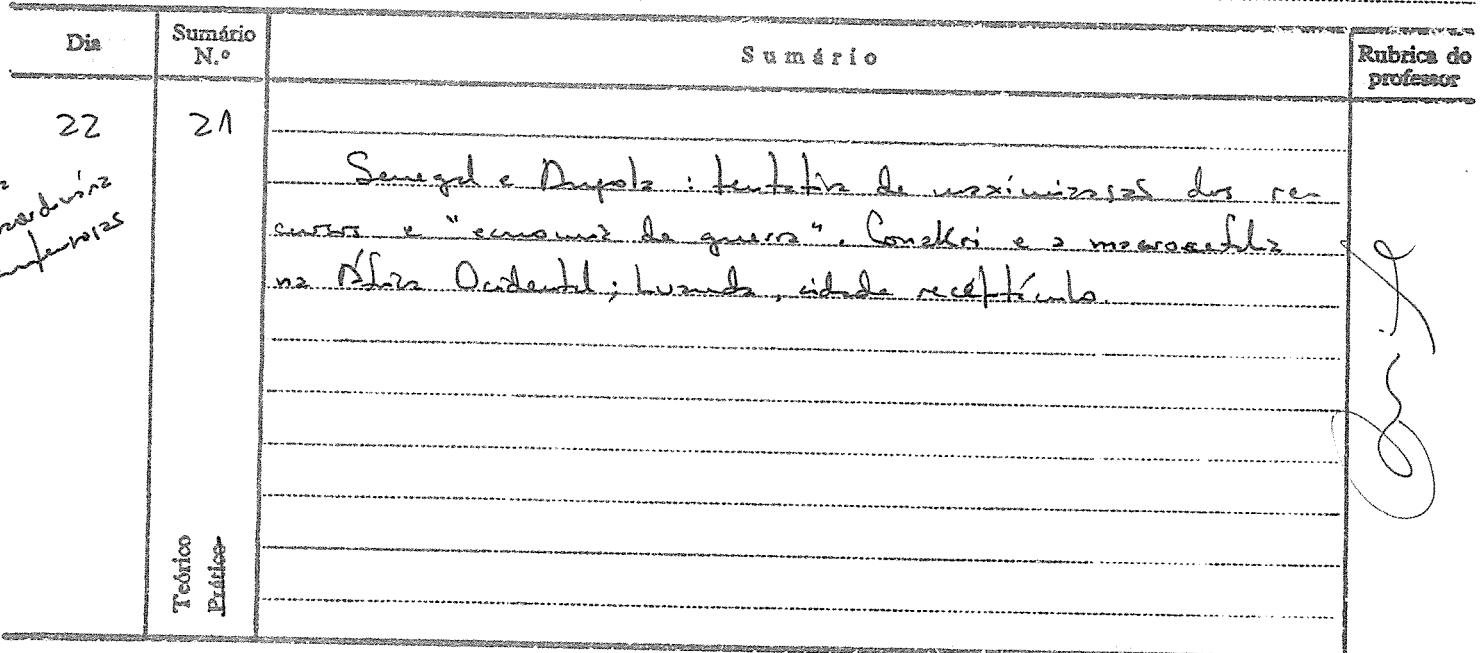 Dia
Sumário N.º
Sumário
Rubrica do professor
22
21
Senegal e Angola : tentativa de maximização dos re-
cursos e "economia de guerra". Conakri e a macrocefalia
na África Ocidental; Luanda, cidade receptáculo.
Teórico
Prático